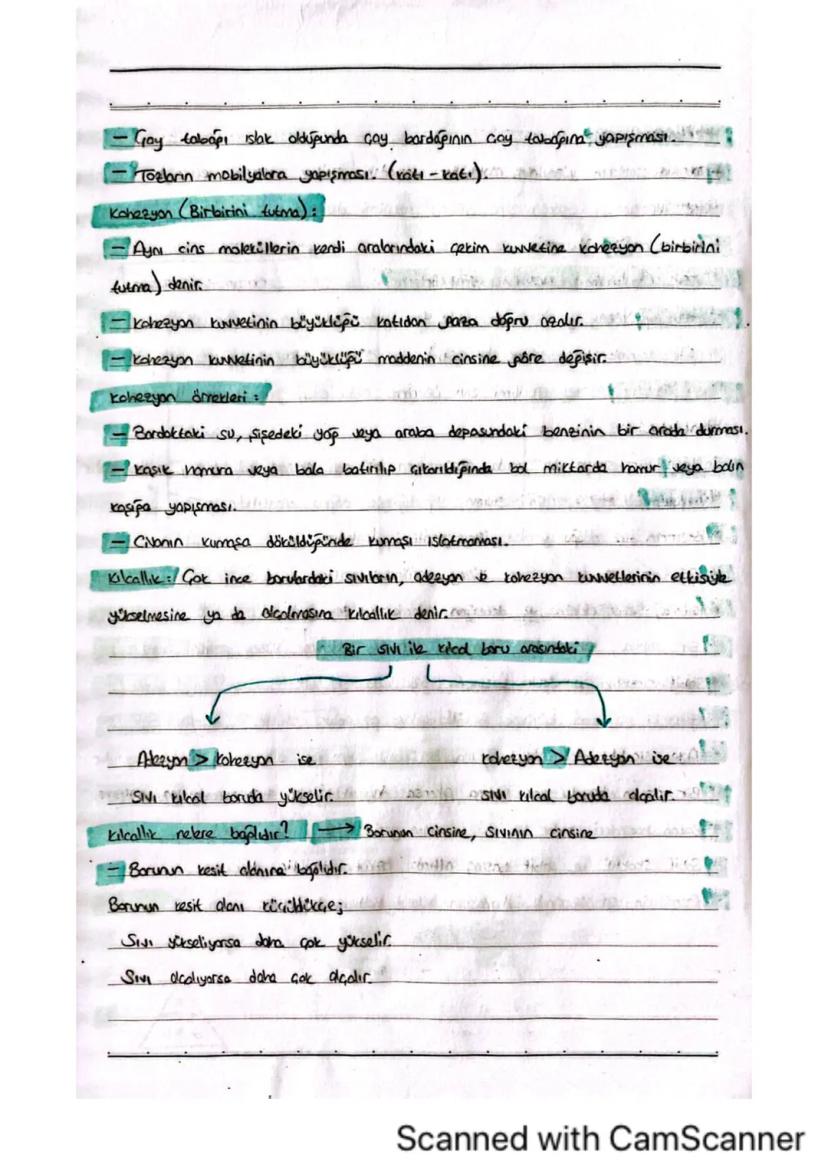 - Çay tabağı ıslak olduğunda çay bardağının çay tabağına yapışması.
- Tozların mobilyalara yapışması. (katı - katı).
Kohezyon (Birbirini tutma) :
- Aynı cins moleküllerin kendi aralarındaki çekim kuvvetine kohezyon (birbirini
tutma) denir.
- Kohezyon kuvvetinin büyüklüğü katıdan gaza doğru azalır.
- Kohezyon kuvvetinin büyüklüğü maddenin cinsine göre değişir.
Kohezyon örnekleri :
- Bardaktaki su, şişedeki yağ veya araba deposundaki benzinin bir arada durması.
- Kaşık hamura veya bala batırılıp çıkarıldığında bol miktarda hamur veya balın
kaşığa yapışması.
- Civanın kumaşa döküldüğünde kumaşı ıslatmaması.
Kılcallık : Çok ince borulardaki sıvıların, adezyon ve kohezyon kuvvetlerinin etkisiyle
yükselmesine ya da alçalmasına kılcallık denir.
Bir sıvı ile kılcal boru arasındaki
Adezyon > kohezyon ise
kohezyon > Adezyon ise
sıvı kılcal boruda yükselir.
sıvı kılcal boruda alçalır.
Kılcallık nelere bağlıdır? → Borunun cinsine, sıvının cinsine
- Borunun kesit alanına bağlıdır.
Borunun kesit alanı küçüldükçe;
Sıvı yükseliyorsa daha çok yükselir.
Sıvı alçalıyorsa daha çok alçalır.
Scanned with CamScanner